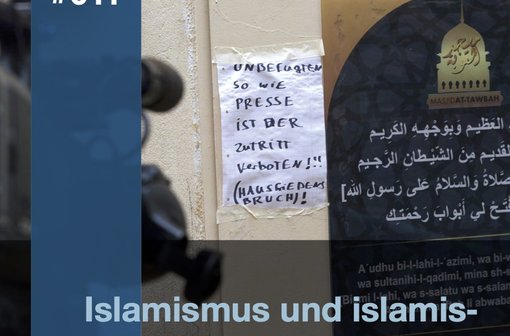 UNBEFUGTEN
SO WIE
PRESSE
IST DER
ZUTRITT
VERBOTEN!!!
(HAUSFRIEDENS
BRUCH)!
MASJIDAT-TAWBAH
العَظيم وَبِوَجْهِهِ الكَريم
القَديم مِنَ الشَّيْطانِ الرَّجيم
صَّلاةُ وَالسَّلامُ عَلى رَسولِ الله]
فْتَحْ لي أَبْوابَ رَحْمَتِكَ
A´udhu bi-l-lahi-l-´azimi, wa bi-
wa sultanihi-l-qadimi, mina sh-
mi l-lahi, wa s-salatu wa s-salam
li abwaba
Islamismus und islamis-